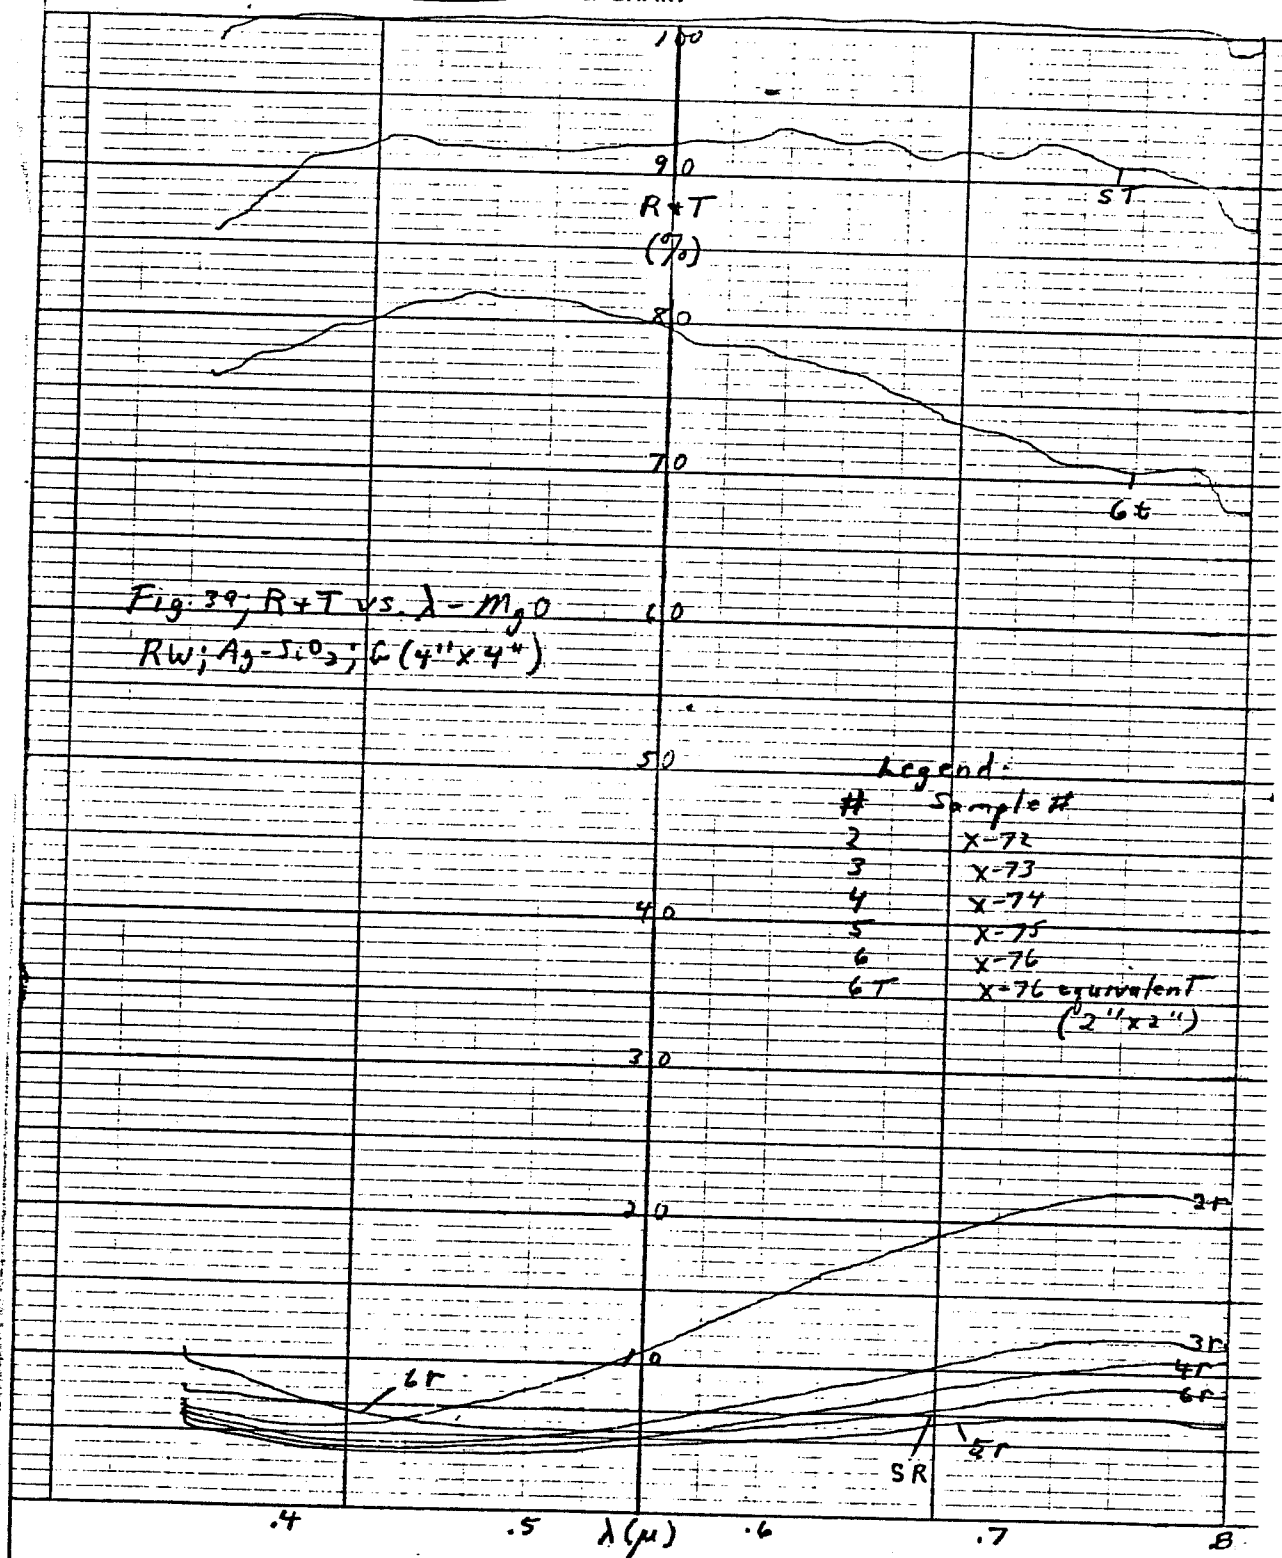 100
90
ST
R+T
(%)
80
70
6t
Fig. 39; R+T vs. λ - MgO
RW; Ag-SiO2; G (4"x4")
60
50
Legend:
# Sample #
2 X-72
3 X-73
4 X-74
5 X-75
6 X-76
6T X-76 equivalent
(2"x2")
40
30
20
2r
10
3r
4r
6r
6r
5r
SR
.4 .5 λ(μ) .6 .7 .8